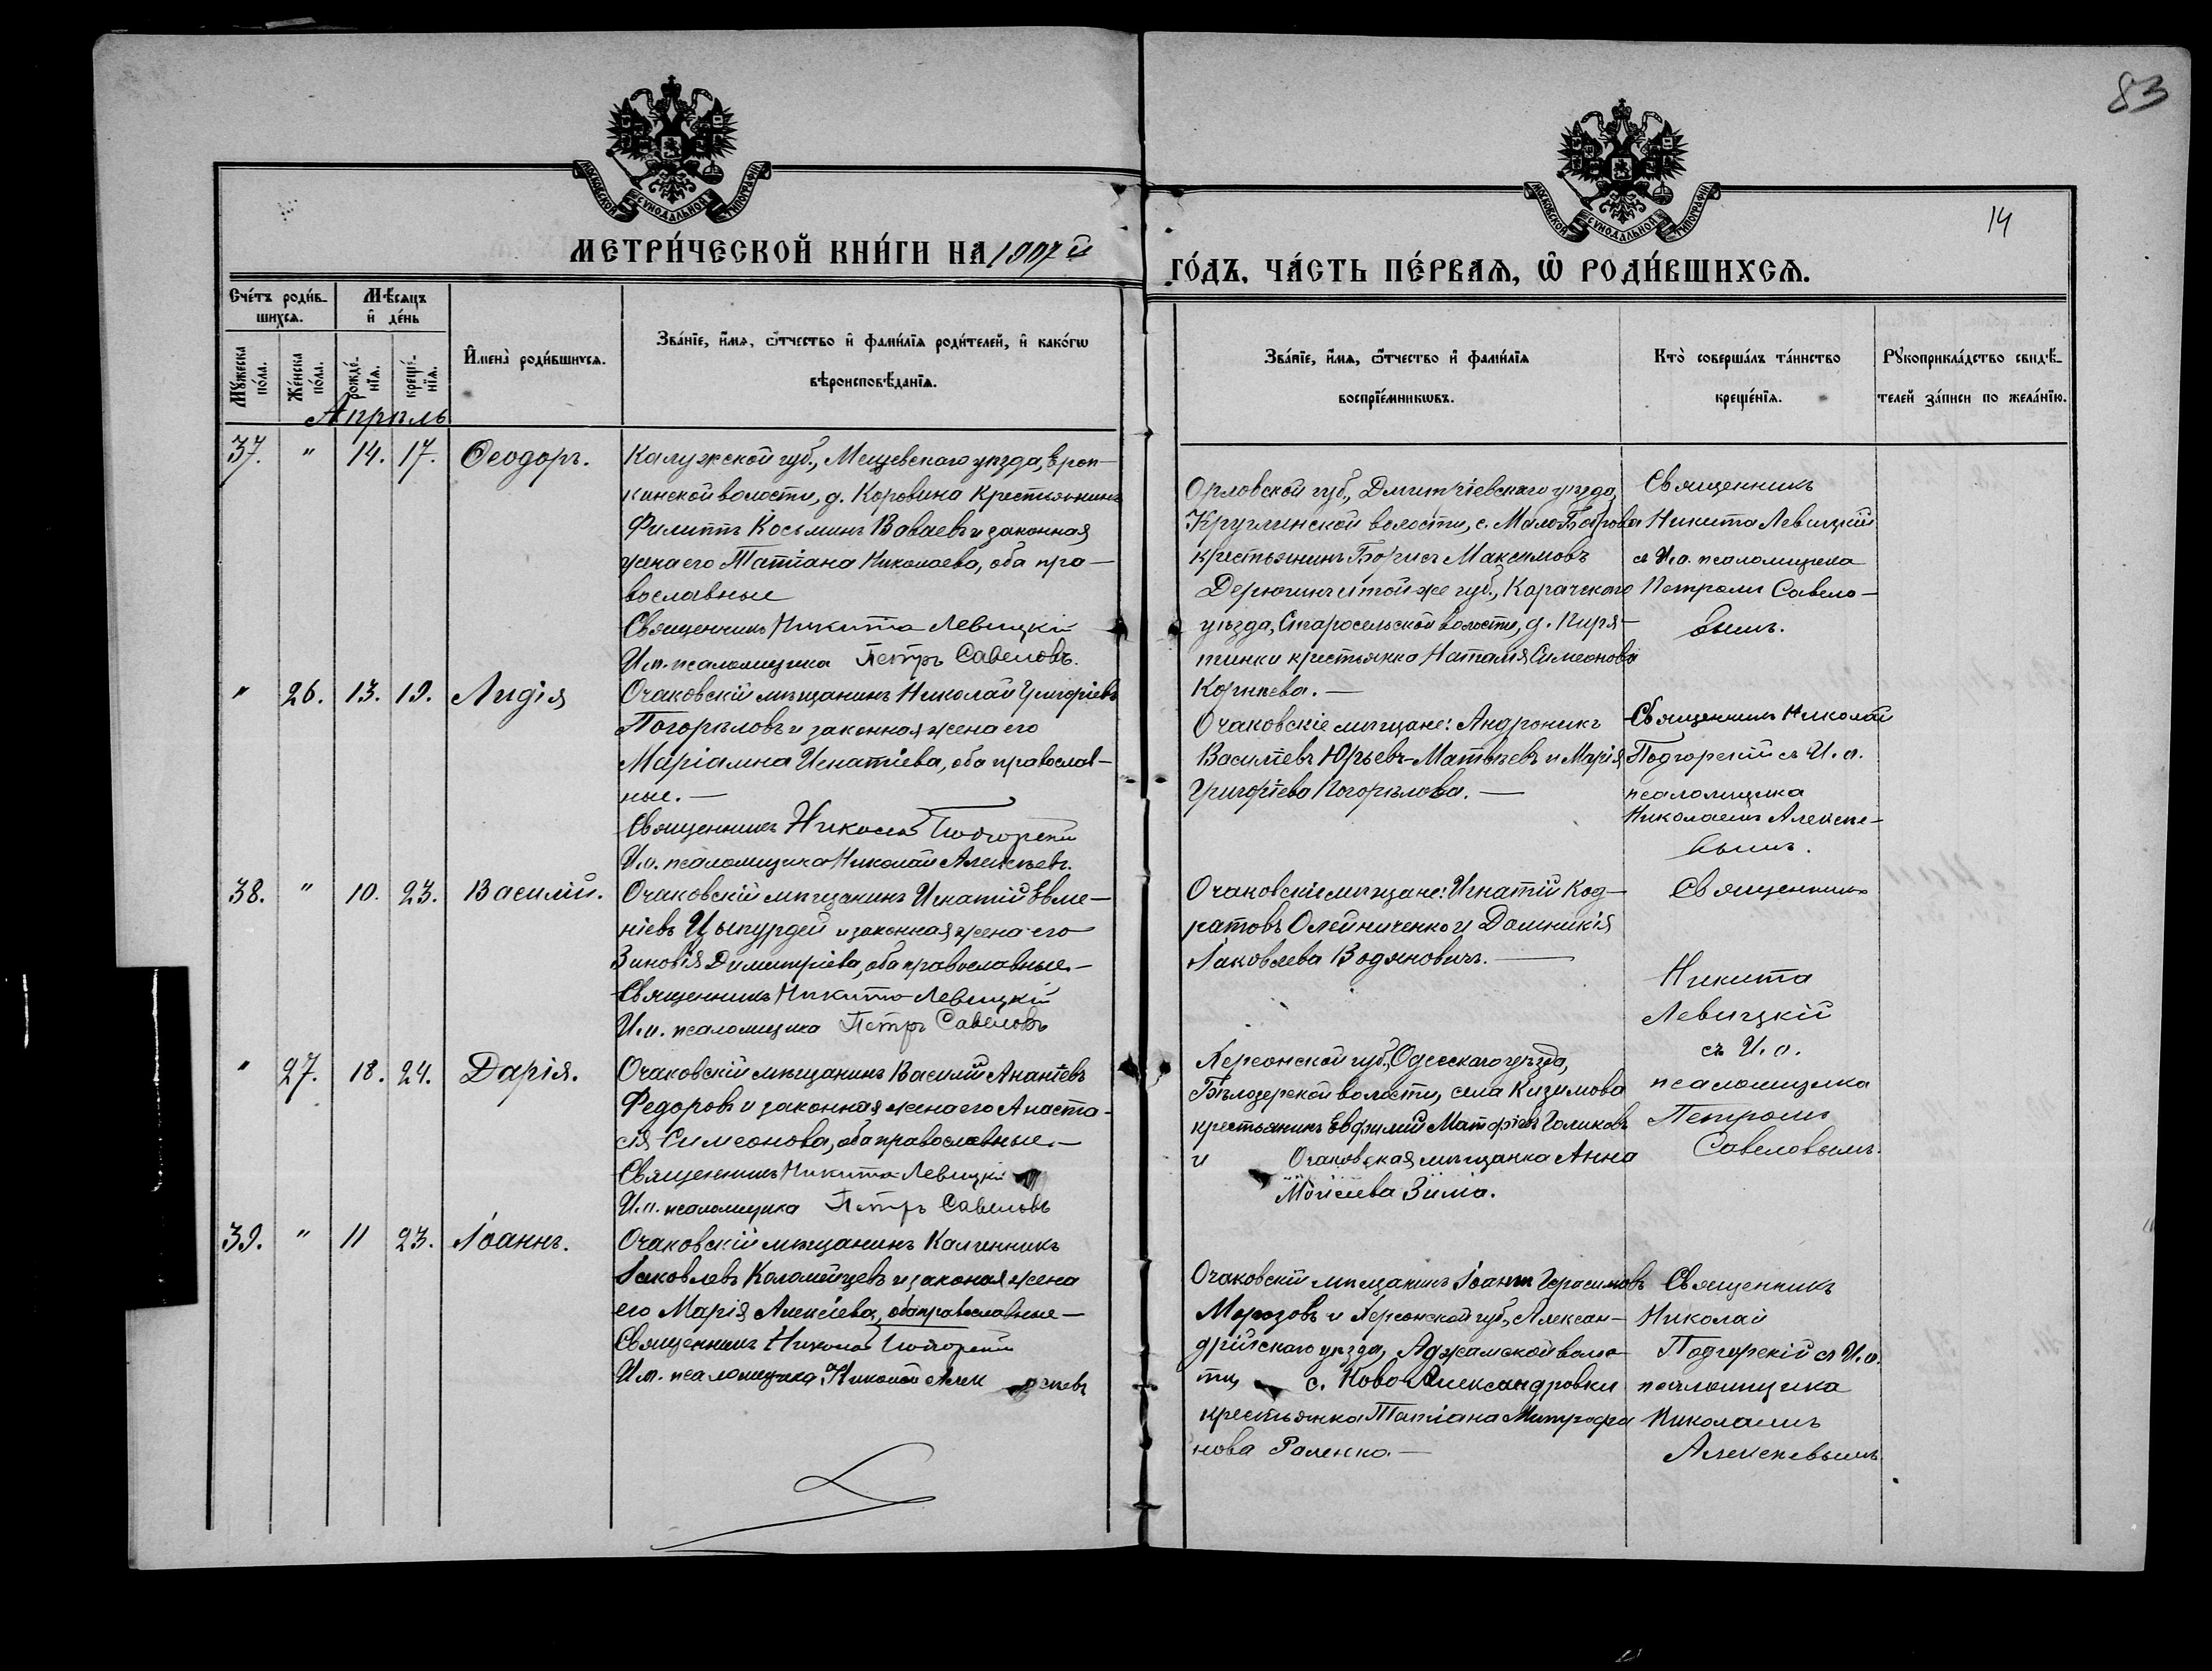 83
14
МОСКОВСКОЙ СѴНОДАЛЬНОЙ ТИПОГРАФІИ
МОСКОВСКОЙ СѴНОДАЛЬНОЙ ТИПОГРАФІИ
МЕТРИ́ЧЕСКОЙ КНИ́ГИ НА 1907 й
ГО́ДЪ, ЧА́СТЬ ПЕ́РВАѦ, Ѽ РОДИ́ВШИХСѦ.
Сче́тъ роди́в-
шихсѧ.
Мѣ́сѧцъ
и҆ де́нь
Мꙋ́жеска
по́ла.
Же́нска
по́ла.
рожде́-
нїѧ.
креще́-
нїѧ.
И҆мена̀ роди́вшихсѧ.
Зва́нїе, и҆́мѧ, ѻ҆́тчество и҆ фами́лїѧ роди́телей, и҆ како́гѡ
вѣроисповѣ́данїѧ.
Зва́нїе, и҆́мѧ, ѻ҆́тчество и҆ фами́лїѧ
воспрїе́мникѡвъ.
Кто̀ соверша́лъ та́инство
креще́нїѧ.
Рꙋкоприкла́дство свидѣ́-
телей за́писи по жела́нїю.
Апрѣль
37. " 14. 17. Ѳеодоръ.
Калужской губ., Мещевскаго уѣзда, Ероп-
кинской волости, д. Коровина крестьянинъ
Филиппъ Косьминъ Ваваевъ и законная
жена его Татіана Николаева, оба пра-
вославные
Священникъ Никита Левицкій
И.о. псаломщика Петръ Савеловъ.
Орловской губ., Дмитріевскаго уѣзда,
Круглинской волости, с. Мало-Боброва
крестьянинъ Борисъ Максимовъ
Дерюгинъ и той же губ., Карачскаго
уѣзда, Старосельской волости, д. Пиря-
тинки крестьянка Наталія Симеонова
Корнѣева. —
Священникъ
Никита Левицкій
съ И.о. псаломщика
Петромъ Савело-
вымъ.
" 26. 13. 19. Лидія
Очаковскій мѣщанинъ Николай Григоріевъ
Погорѣловъ и законная жена его
Маріамна Игнатіева, оба православ-
ные. —
Священникъ Николай Подгорскій
И.о. псаломщика Николай Алексѣевъ.
Очаковскіе мѣщане: Андроникъ
Василіевъ Юрьевъ-Матвѣевъ и Марія
Григоріева Погорѣлова. —
Священникъ Николай
Подгорскій съ И.о.
псаломщика
Николаемъ Алексѣе-
вымъ.
38. " 10. 23. Василій.
Очаковскій мѣщанинъ Игнатій Евме-
ніевъ Цыпурдей и законная жена его
Зиновія Димитріева, оба православные. —
Священникъ Никита Левицкій
И.о. псаломщика Петръ Савеловъ
Очаковскіе мѣщане: Игнатій Код-
ратовъ Олейниченко и Домникія
Іаковлева Водяновичъ. —
Священникъ
Никита
Левицкій
съ И.о.
псаломщика
Петромъ
Савеловымъ.
" 27. 18. 24. Дарія.
Очаковскій мѣщанинъ Василій Ананіевъ
Федоровъ и законная жена его Анаста-
сія Симеонова, оба православные. —
Священникъ Никита Левицкій
И.о. псаломщика Петръ Савеловъ
Херсонской губ., Одесскаго уѣзда,
Бѣлозерской волости, села Кизимова
крестьянинъ Евфимій Матфіевъ Голиковъ
и Очаковская мѣщанка Анна
Моисеева Зима.
39. " 11 23. Іоаннъ.
Очаковскій мѣщанинъ Каллиникъ
Іаковлевъ Коломейцевъ и законая жена
его Марія Алексіева, оба православные —
Священникъ Николай Подгорскій
И.о. псаломщика Николай Алек сѣевъ
Очаковскій мѣщанинъ Іоаннъ Герасимовъ
Морозовъ и Херсонской губ., Алексан-
дрійскаго уѣзда, Аджамской воло-
сти, с. Ново-Александровки
крестьянка Татіана Митрофа
нова Раленко. —
Священникъ
Николай
Подгорскій съ И.о.
псаломщика
Николаемъ
Алексѣевымъ